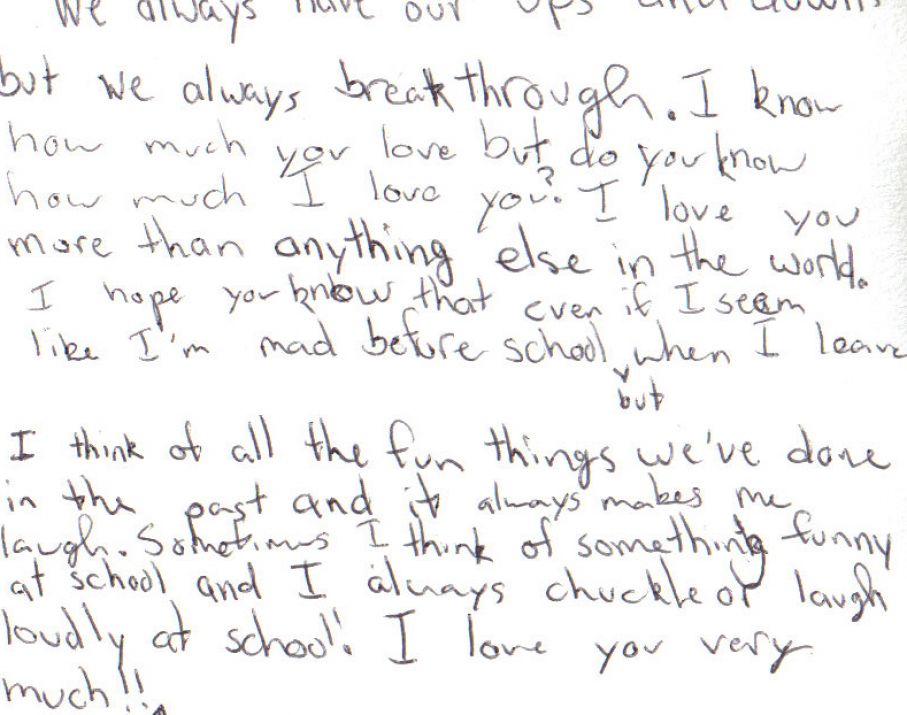 We always have our ups and downs
but we always break through. I know
how much you love but do you know
how much I love you? I love you
more than anything else in the world.
I hope you know that even if I seem
like I'm mad before school, when I leave
but
I think of all the fun things we've done
in the past and it always makes me
laugh. Sometimes I think of something funny
at school and I always chuckle or laugh
loudly at school. I love you very
much!!